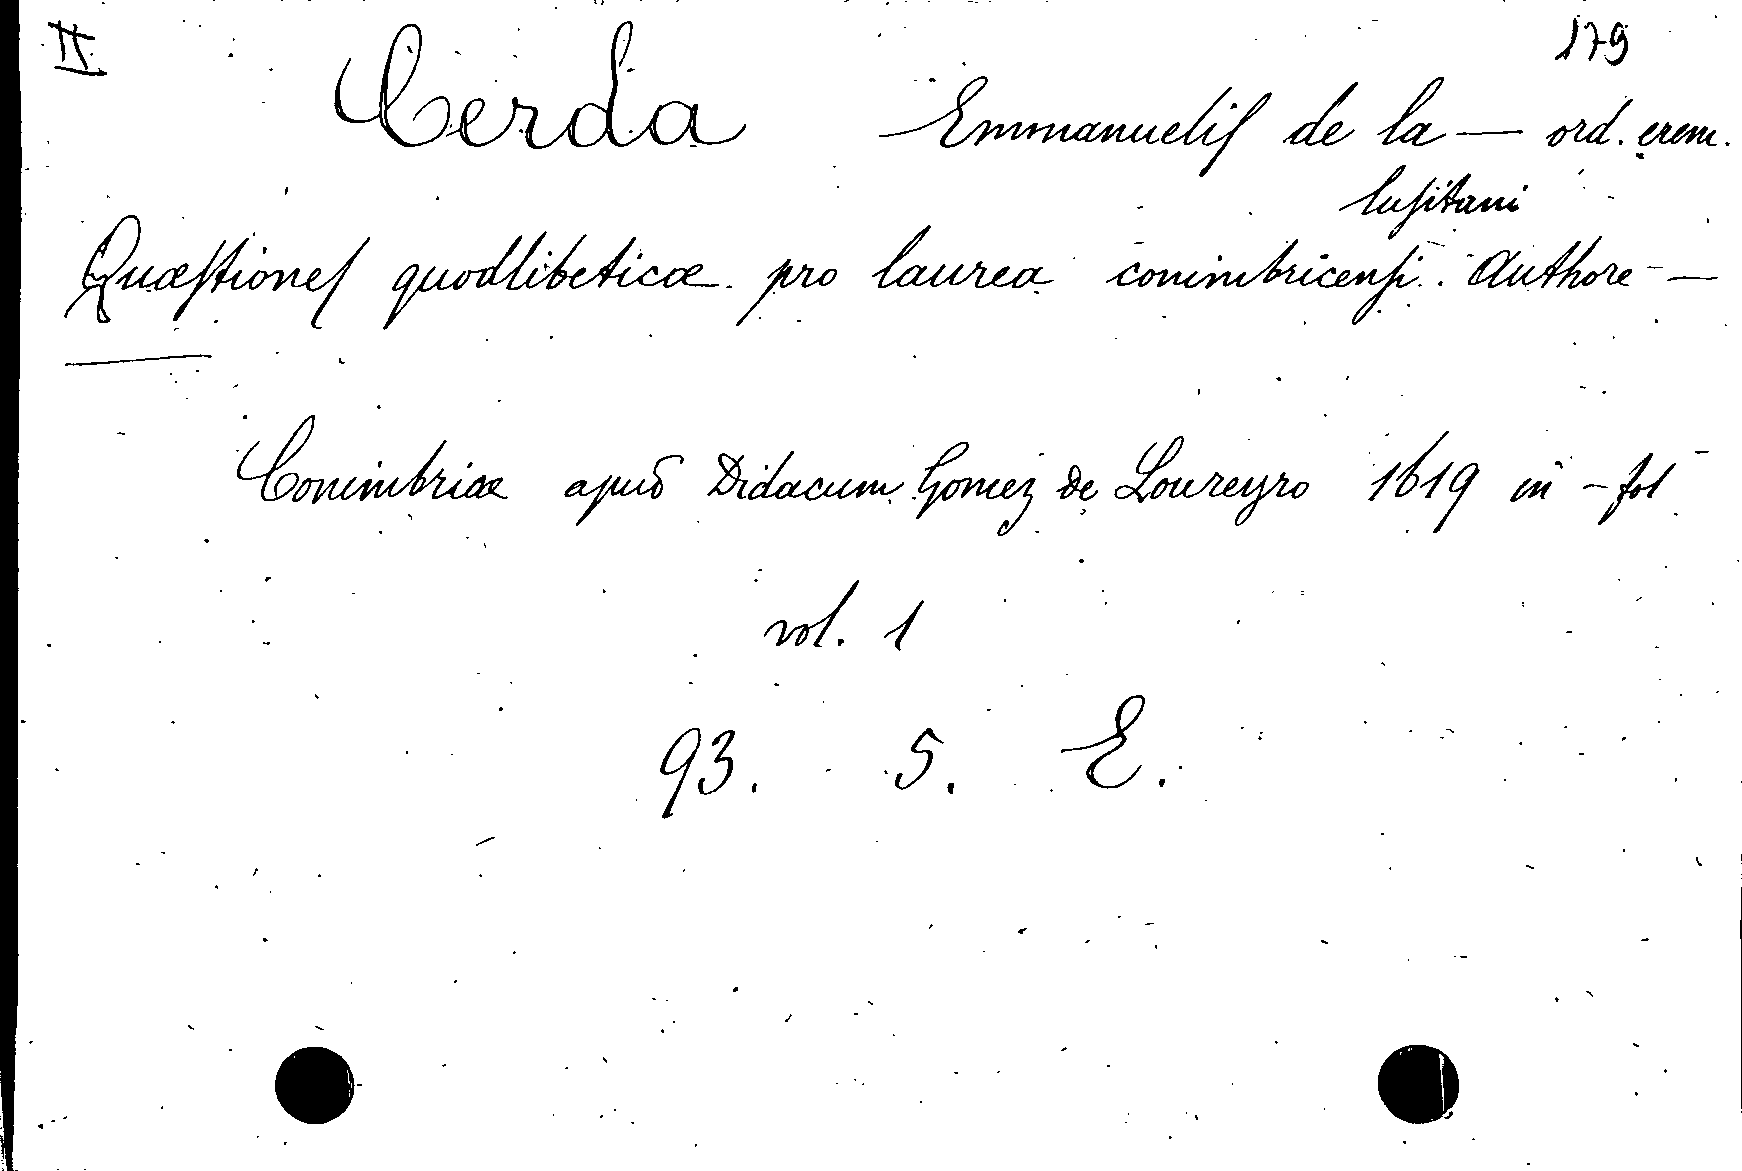 II. 179
Cerda Emmanuelis de la — ord. erem.
lusitani
Quæstiones quodlibeticæ pro laurea conimbricensi. Authore —
Conimbricæ apud Didacum Gomez de Loureyro 1619 in-fol
vol. 1
93. 5. E.